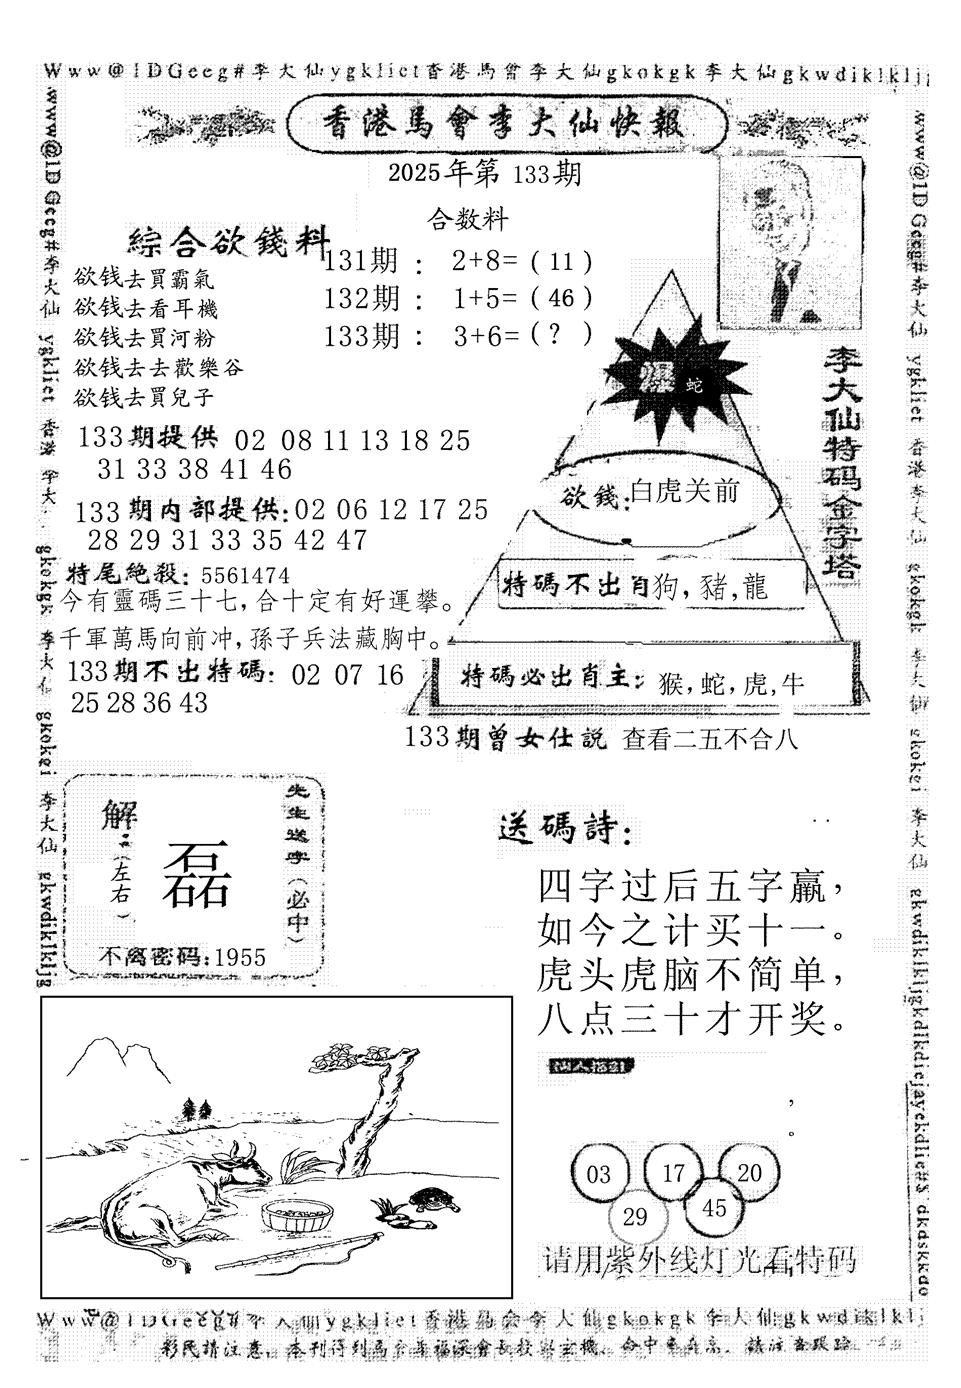 Www@1DGeeg#李大仙ygkliet香港馬會李大仙gkokgk李大仙gkwdiklkljg
香港馬會李大仙快報
2025年第 133期
合数料
綜合欲錢料
131期 ： 2+8=（11）
132期 ： 1+5=（46）
133期 ： 3+6=（?）
欲钱去買霸氣
欲钱去看耳機
欲钱去買河粉
欲钱去去歡樂谷
欲钱去買兒子
133期提供 02 08 11 13 18 25
31 33 38 41 46
133期内部提供:02 06 12 17 25
28 29 31 33 35 42 47
特尾絶殺: 5561474
今有靈碼三十七，合十定有好運攀。
千軍萬馬向前冲，孫子兵法藏胸中。
133期不出特碼: 02 07 16
25 28 36 43
爆 蛇
欲錢:白虎关前
特碼不出肖狗，豬，龍
特碼必出肖主: 猴，蛇，虎，牛
李大仙特码金字塔
133期曾女仕説 查看二五不合八
解:
（左右）
磊
先生送字（必中）
不离密码:1955
送碼詩:
四字过后五字赢，
如今之计买十一。
虎头虎脑不简单，
八点三十才开奖。
，
。
03 17 20
29 45
请用紫外线灯光看特码
www@1DGeeg#李大仙 ygkliet 香港 李大 gkokgk 李大仙 gkokei 李大仙 gkwdiklkljg
www@1DGeeg#李大仙 ygkliet 香港李大仙 gkokgk 李大仙 gkokei 李大仙 gkwdiklkljgkdlkdiejayekdlie#$ dkdskkdo